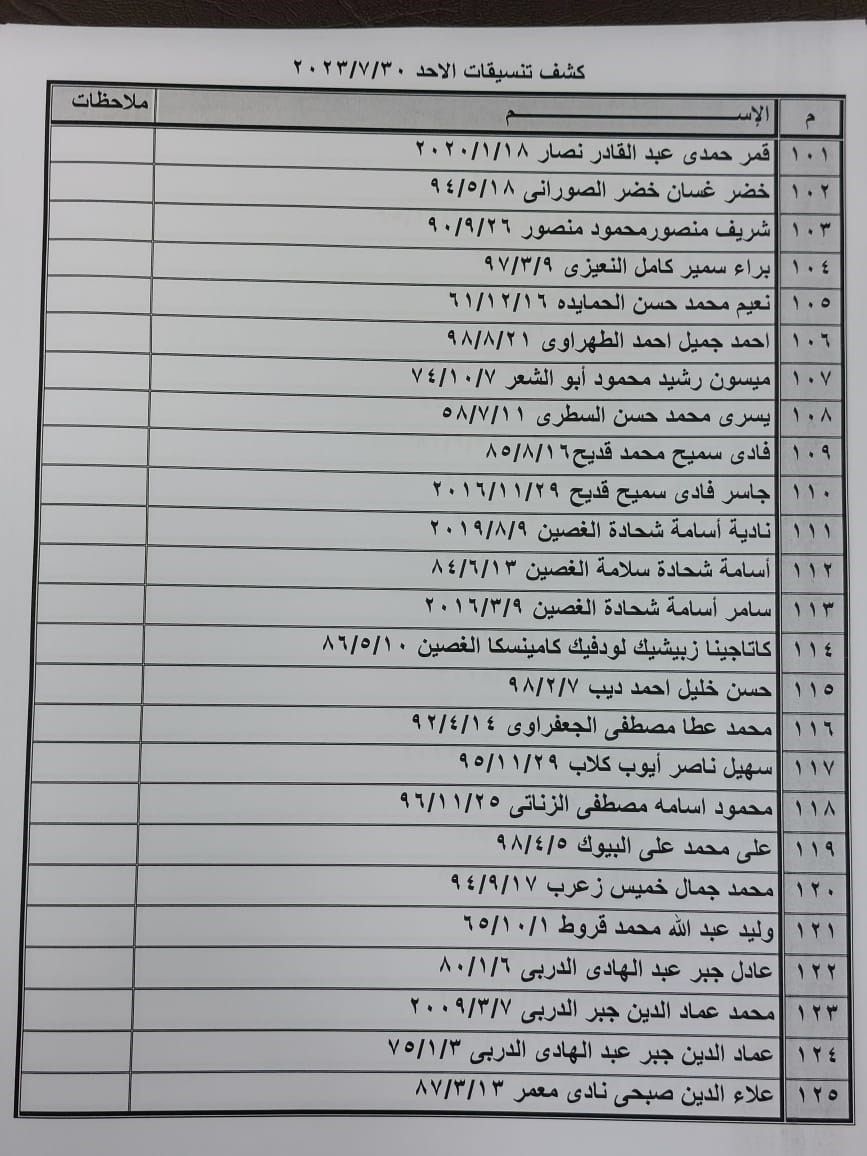 كشف تنسيقات الاحد ٢٠٢٣/٧/٣٠
م الإســـــــم ملاحظات
١٠١ قمر حمدى عبد القادر نصار ٢٠٢٠/١/١٨
١٠٢ خضر غسان خضر الصورانى ٩٤/٥/١٨
١٠٣ شريف منصورمحمود منصور ٩٠/٩/٢٦
١٠٤ براء سمير كامل النعيزى ٩٧/٣/٩
١٠٥ نعيم محمد حسن الحمايده ٦١/١٢/١٦
١٠٦ احمد جميل احمد الطهراوى ٩٨/٨/٢١
١٠٧ ميسون رشيد محمود أبو الشعر ٧٤/١٠/٧
١٠٨ يسرى محمد حسن السطرى ٥٨/٧/١١
١٠٩ فادى سميح محمد قديح٨٥/٨/١٦
١١٠ جاسر فادى سميح قديح ٢٠١٦/١١/٢٩
١١١ نادية أسامة شحادة الغصين ٢٠١٩/٨/٩
١١٢ أسامة شحادة سلامة الغصين ٨٤/٦/١٣
١١٣ سامر أسامة شحادة الغصين ٢٠١٦/٣/٩
١١٤ كاتاجينا زبيشيك لودفيك كامينسكا الغصين ٨٦/٥/١٠
١١٥ حسن خليل احمد ديب ٩٨/٢/٧
١١٦ محمد عطا مصطفى الجعفراوى ٩٢/٤/١٤
١١٧ سهيل ناصر أيوب كلاب ٩٥/١١/٢٩
١١٨ محمود اسامه مصطفى الزناتى ٩٦/١١/٢٥
١١٩ على محمد على البيوك ٩٨/٤/٥
١٢٠ محمد جمال خميس زعرب ٩٤/٩/١٧
١٢١ وليد عبد الله محمد قروط ٦٥/١٠/١
١٢٢ عادل جبر عبد الهادى الدربى ٨٠/١/٦
١٢٣ محمد عماد الدين جبر الدربى ٢٠٠٩/٣/٧
١٢٤ عماد الدين جبر عبد الهادى الدربى ٧٥/١/٣
١٢٥ علاء الدين صبحى نادى معمر ٨٧/٣/١٣